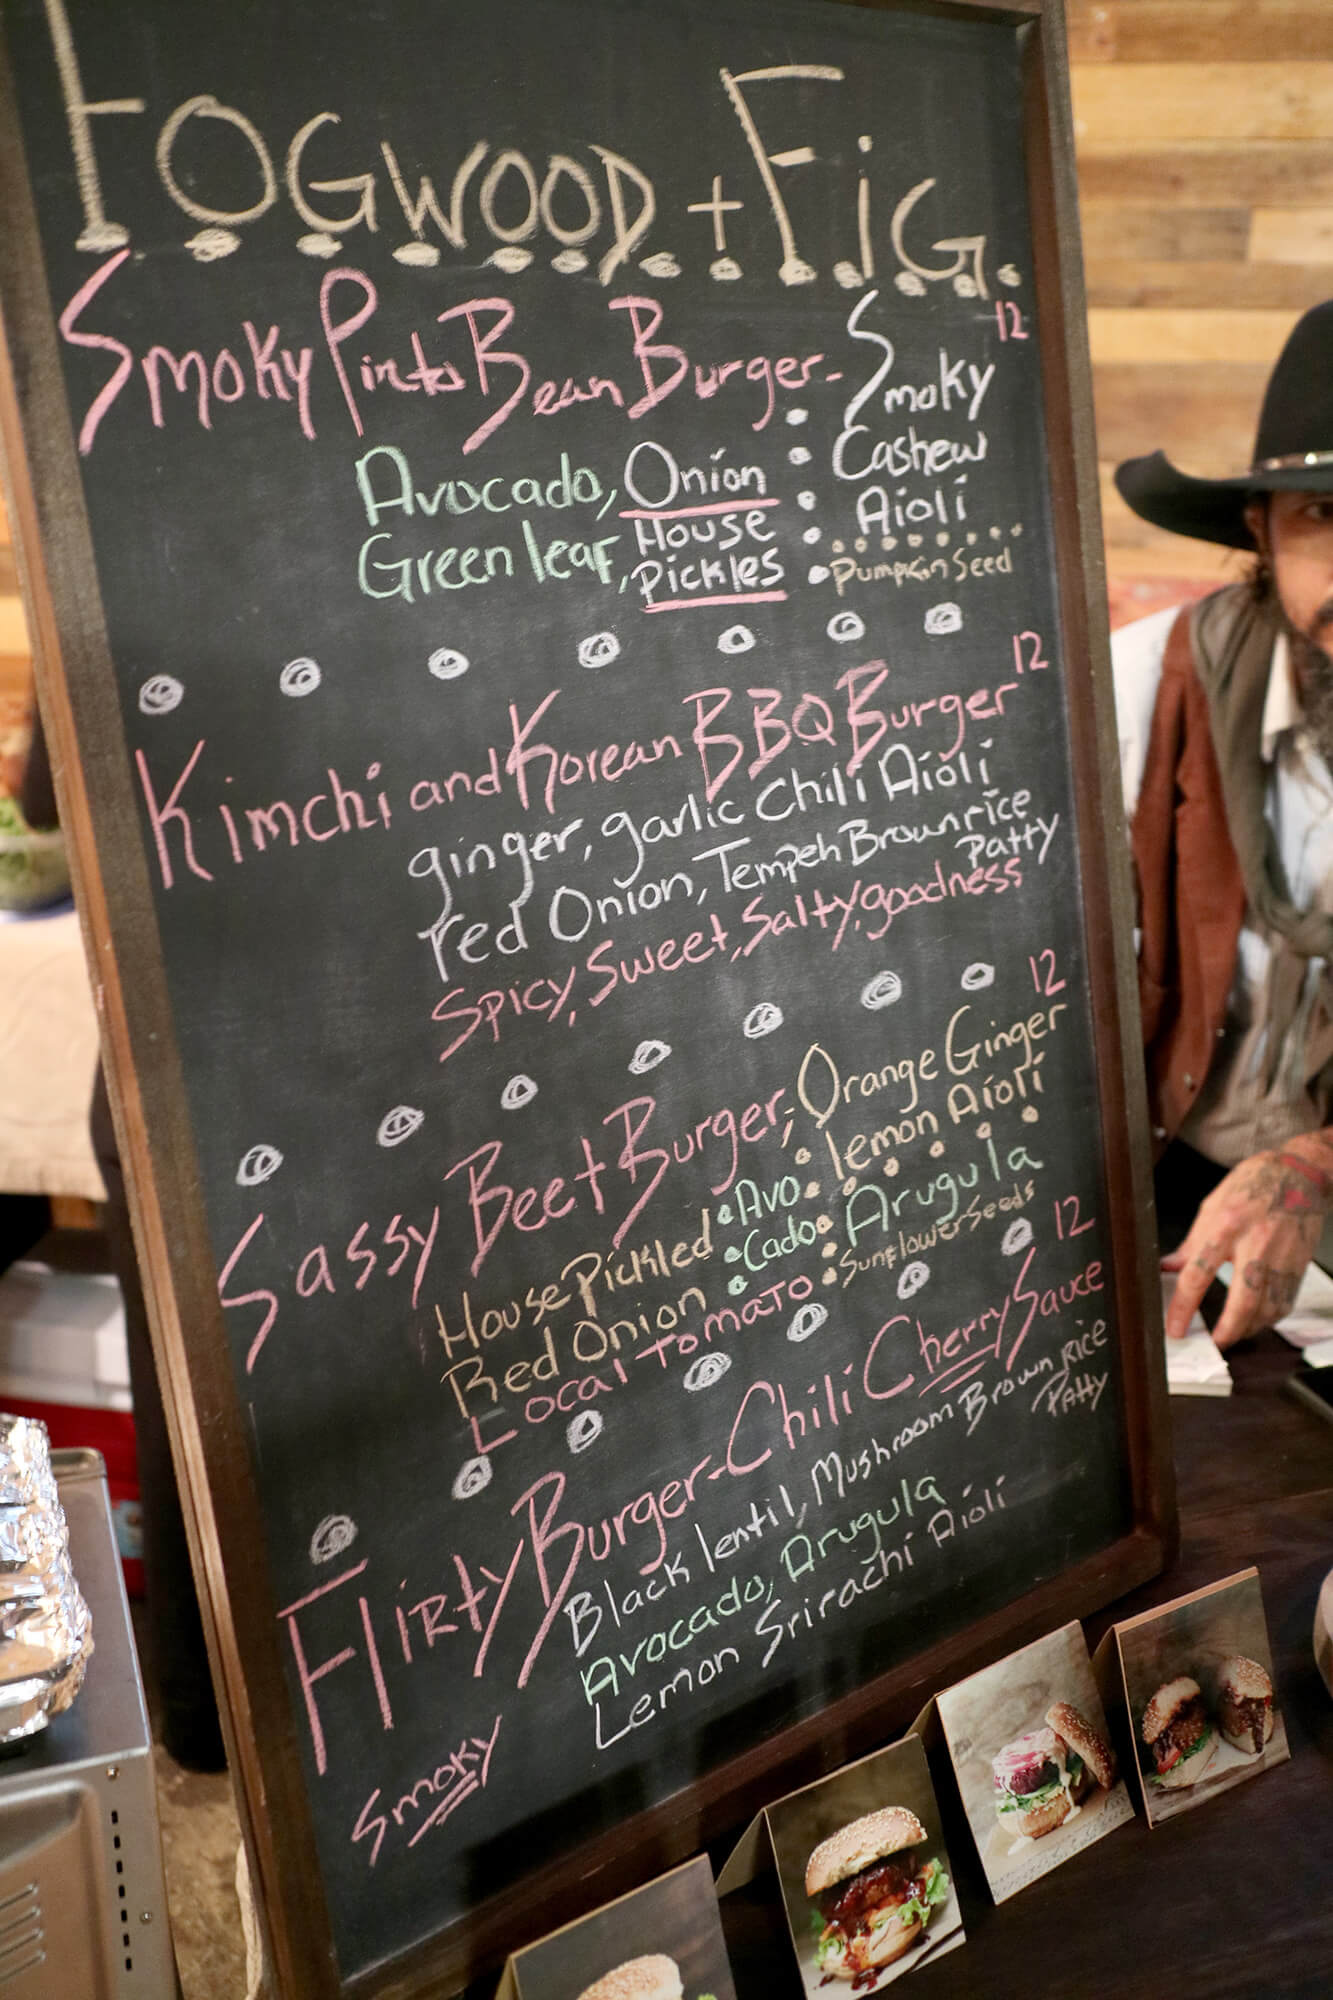 FOGWOOD + FiG.
Smoky Pinto Bean Burger - Smoky 12
Cashew
Aioli
Pumpkin Seed
Avocado, Onion
Green leaf, House
Pickles
Kimchi and Korean BBQ Burger 12
ginger, garlic Chili Aioli
red Onion, Tempeh Brown rice
Patty
Spicy, Sweet, Salty, goodness
Sassy Beet Burger, Orange Ginger 12
lemon Aioli
House Pickled Avo Arugula
Red Onion Cado Sunflower Seeds
Local Tomato
Flirty Burger - Chili Cherry Sauce 12
Black lentil, Mushroom Brown Rice
Patty
Avocado, Arugula
Lemon Srirachi Aioli
Smoky